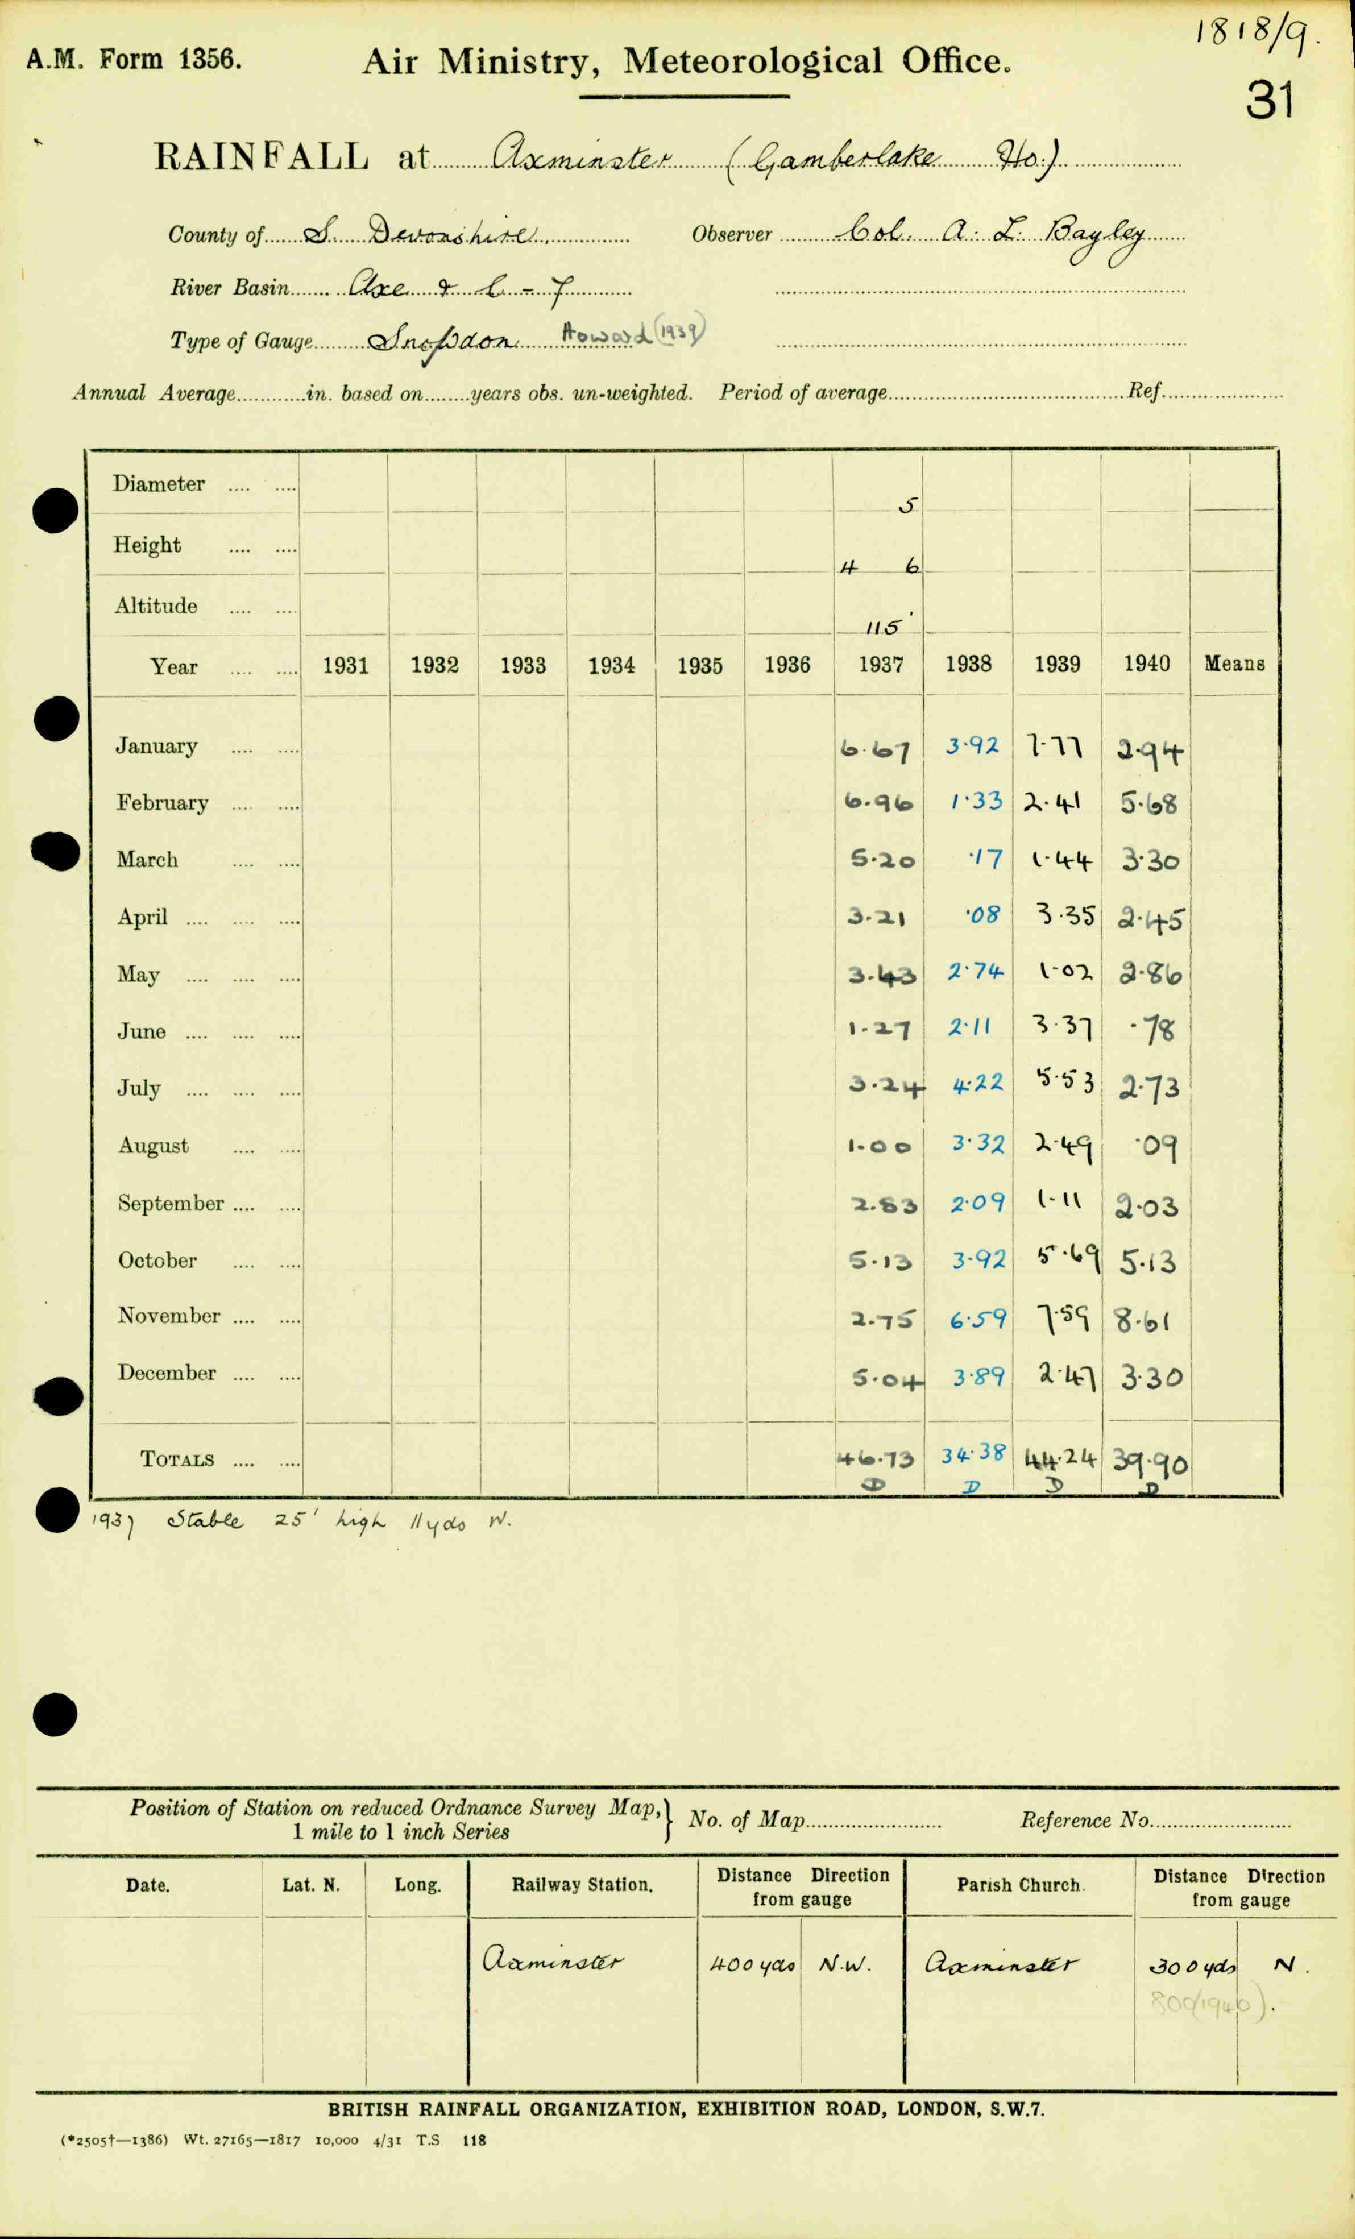 1818/9.
A.M. Form 1356. Air Ministry, Meteorological Office.
31
RAINFALL at Axminster (Gamberlake Ho.)
County of S. Devonshire. Observer Col. A. L. Bayley
River Basin Axe & C - 7
Type of Gauge Snowdon Howard (1939)
Annual Average in. based on years obs. un-weighted. Period of average Ref.
Diameter 5
Height 4 6
Altitude 115'
Year 1931 1932 1933 1934 1935 1936 1937 1938 1939 1940 Means
January 6.67 3.92 7.77 2.94
February 6.96 1.33 2.41 5.68
March 5.20 .17 1.44 3.30
April 3.21 .08 3.35 2.45
May 3.43 2.74 1.02 2.86
June 1.27 2.11 3.37 .78
July 3.24 4.22 5.53 2.73
August 1.00 3.32 2.49 .09
September 2.83 2.09 1.11 2.03
October 5.13 3.92 5.69 5.13
November 2.75 6.59 7.59 8.61
December 5.04 3.89 2.47 3.30
TOTALS 46.73 34.38 44.24 39.90
D D D D
1937 Stable 25' high 11 yds W.
Position of Station on reduced Ordnance Survey Map, 1 mile to 1 inch Series } No. of Map Reference No.
Date. Lat. N. Long. Railway Station. Distance Direction from gauge Parish Church. Distance Direction from gauge
Axminster 400 yds N.W. Axminster 300 yds N.
800 (1940).
BRITISH RAINFALL ORGANIZATION, EXHIBITION ROAD, LONDON, S.W.7.
(*2505†—1386) Wt. 27165—1817 10,000 4/31 T.S 118